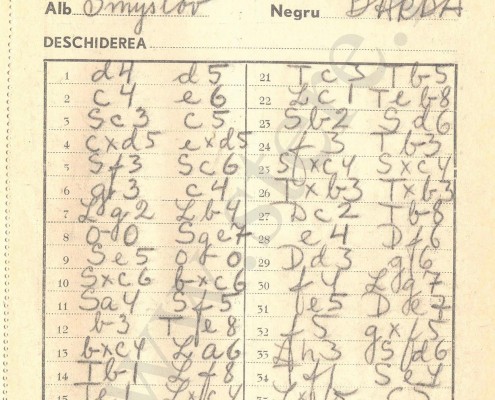 Alb Smyslov Negru DARDA
DESCHIDEREA
1 d4 d5 21 Tc3 Tb5
2 c4 e6 22 Lc1 Teb8
3 Sc3 c5 23 Sb2 Sd6
4 cxd5 exd5 24 f3 Tb3
5 Sf3 Sc6 25 Sfxc4 Sxc4
6 gr3 c4 26 Txb3 Txb3
7 Lg2 Lb4 27 Dc2 Tb8
8 0-0 Sge7 28 e4 Df6
9 Se5 0-0 29 Dd3 g6
10 Sxc6 bxc6 30 f4 Lg7
11 Sa4 Sf5 31 e5 De7
12 b3 Te8 32 f5 gxf5
13 bxc4 La6 33 Lh3
14 Tb1 Lf8 34 Se4
15 Lxc4
www.